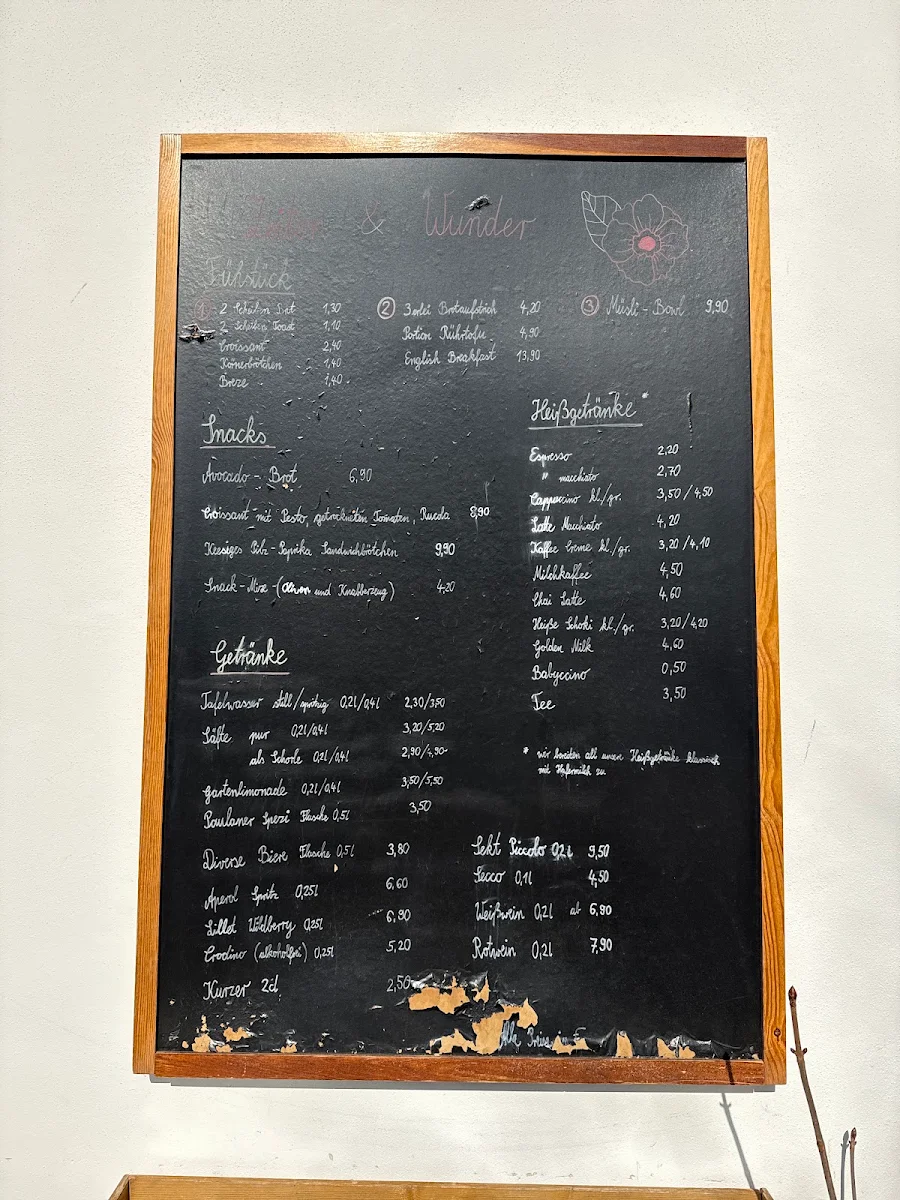 & Wunder
Frühstück
① 2 Scheiben Brot 1,30
2 Scheiben Toast 1,10
Croissant 2,40
Körnerbrötchen 1,40
Breze 1,40
② 3erlei Brotaufstrich 4,20
Portion Rührtofu 4,90
English Breakfast 13,90
③ Müsli - Bowl 9,90
Snacks
Avocado - Brot 6,90
Croissant mit Pesto, getrockneten Tomaten, Rucola 8,90
Keesiges Pilz-Paprika Sandwichbrötchen 9,90
Snack-Mix (Oliven und Knabberzeug) 4,20
Heißgetränke *
Espresso 2,20
" macchiato 2,70
Cappuccino kl./gr. 3,50 / 4,50
Latte Macchiato 4,20
Kaffee Creme kl./gr. 3,20 / 4,10
Milchkaffee 4,50
Chai Latte 4,60
Heiße Schoki kl./gr. 3,20/4,20
Golden Milk 4,60
Babyccino 0,50
Tee 3,50
* wir bereiten all unsere Heißgetränke klassisch
mit Hafermilch zu
Getränke
Tafelwasser still/spritzig 0,2l/0,4l 2,30/3,50
Säfte pur 0,2l/0,4l 3,20/5,20
als Schorle 0,2l/0,4l 2,90/4,90
Gartenlimonade 0,2l/0,4l 3,50/5,50
Paulaner Spezi Flasche 0,5l 3,50
Diverse Biere Flasche 0,5l 3,80
Aperol Spritz 0,25l 6,60
Lillet Wildberry 0,25l 6,90
Crodino (alkoholfrei) 0,25l 5,20
Kurzer 2cl 2,50
Sekt Piccolo 0,2l 9,50
Secco 0,1l 4,50
Weißwein 0,2l ab 6,90
Rotwein 0,2l 7,90
Alle Preise in €